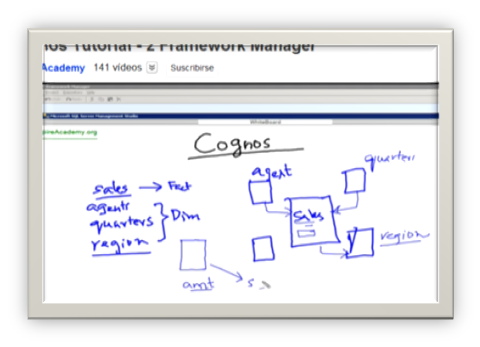 Tutorial - 2 Framework Manager
Academy 141 videos Suscribirse
Microsoft SQL Server Management Studio
WhiteBoard
ireAcademy.org
Cognos
sales → Fact
agents
quarters
region
Dim
agent
quarters
sales
region
amt
s